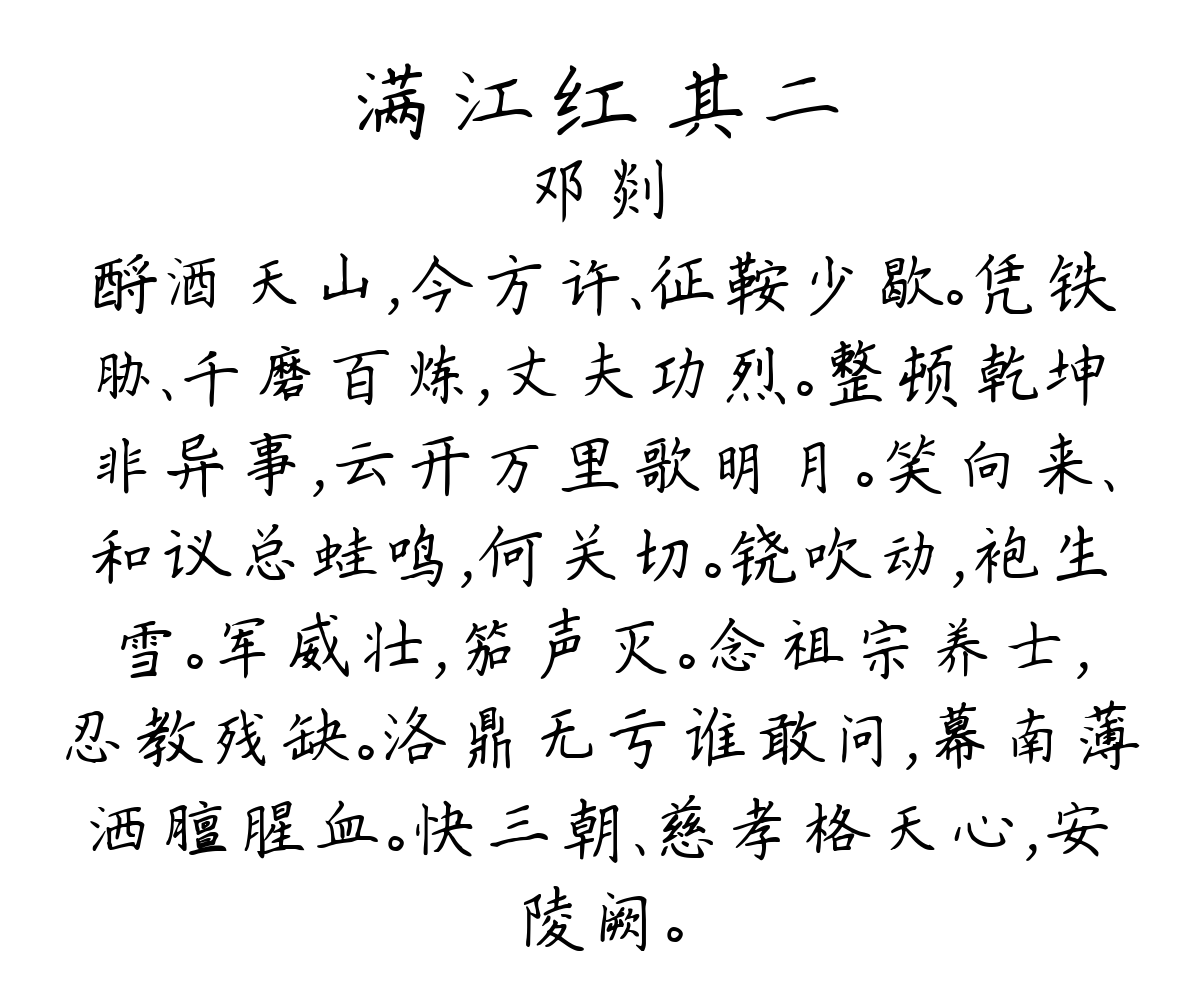 满江红 其二
邓剡
酹酒天山,今方许、征鞍少歇。凭铁
胁、千磨百炼,丈夫功烈。整顿乾坤
非异事,云开万里歌明月。笑向来、
和议总蛙鸣,何关切。铙吹动,袍生
雪。军威壮,笳声灭。念祖宗养士,
忍教残缺。洛鼎无亏谁敢问,幕南薄
洒膻腥血。快三朝、慈孝格天心,安
陵阙。